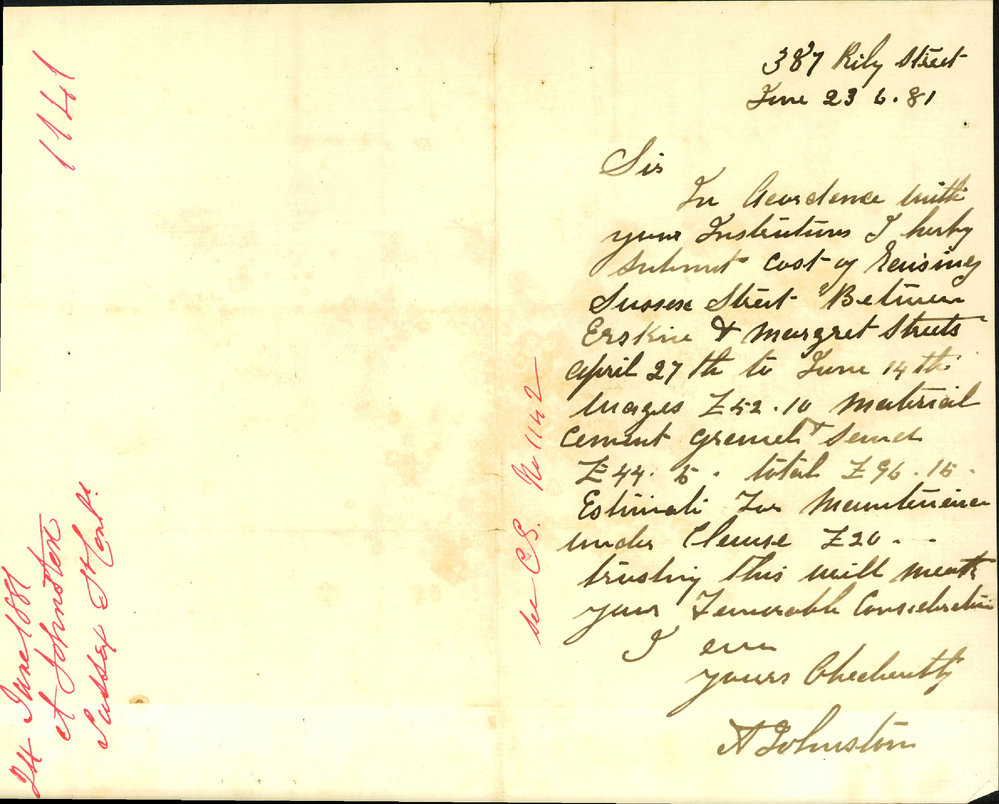 387 Rily Street
June 23 6.81
Sir
In Acordence with
your Instrutions I herby
submit cost of Raising
Sussex Street Between
Erskine & Margret Streets
april 27th to June 14th
Wages £52.10 Material
cement gravel & sand
£44.5. total £96.15.
Estimate For Maintainence
under Clause £20 - -
trusting this will meat
your Favorable Consideration
I am
yours Obediently
A Johnston
see C.S. No 1142
24 June 1881
A Johnston
Sussex St Cont.
1141